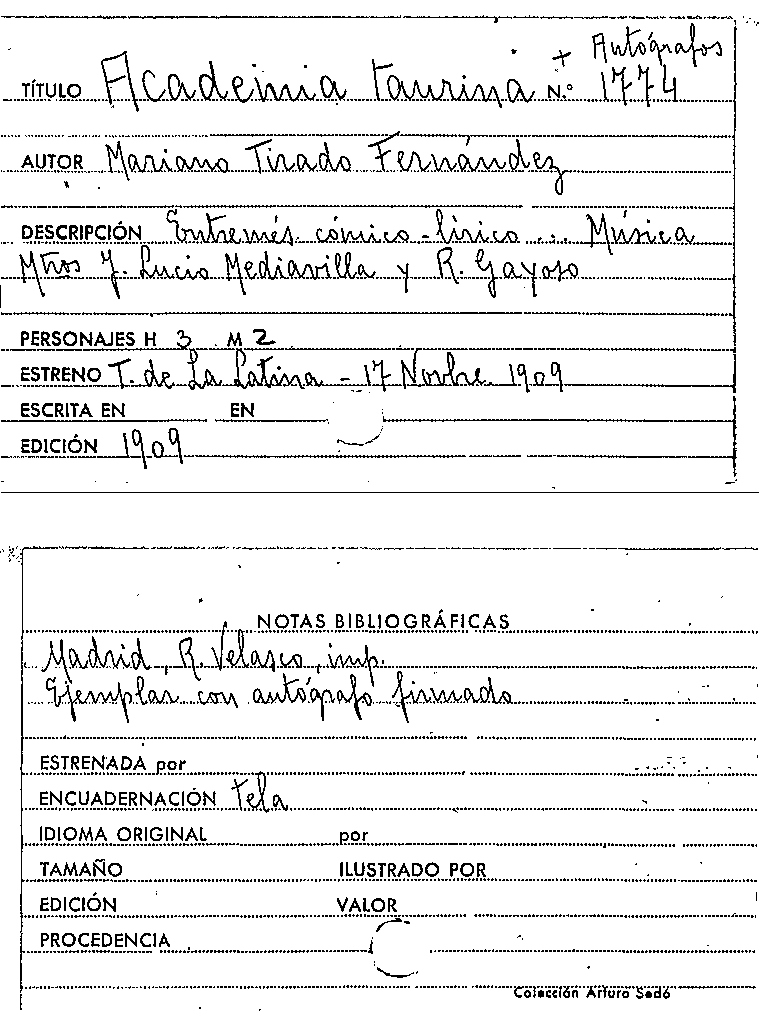 + Autógrafos
TÍTULO Academia taurina N.º 1774
AUTOR Mariano Tirado Fernández
DESCRIPCIÓN Entremés cómico-lírico ... Música
Mtros J. Lucio Mediavilla y R. Gayoso
PERSONAJES H 3 M 2
ESTRENO T. de La Latina - 17 Novbre. 1909
ESCRITA EN EN
EDICIÓN 1909
NOTAS BIBLIOGRÁFICAS
Madrid, R. Velasco, imp.
Ejemplar con autógrafo firmado
ESTRENADA por
ENCUADERNACIÓN tela
IDIOMA ORIGINAL por
TAMAÑO ILUSTRADO POR
EDICIÓN VALOR
PROCEDENCIA
Colección Arturo Sedó